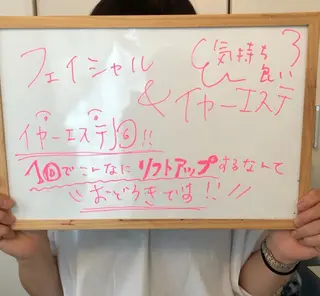 フェイシャル
気持ち良い
&イヤーエステ
イヤーエステ!!
1回でこんなにリフトアップするなんて
おどろきでは!!